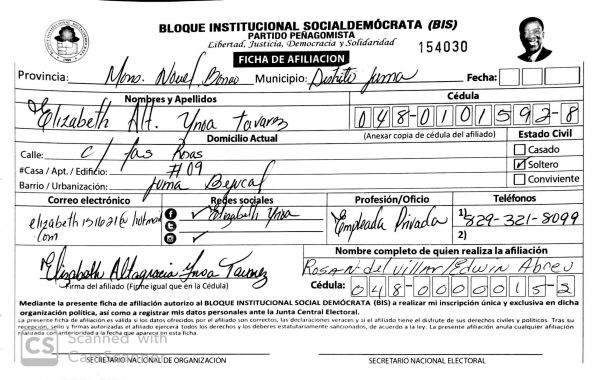 BLOQUE INSTITUCIONAL SOCIALDEMÓCRATA (BIS)
PARTIDO PEÑAGOMISTA
Libertad, Justicia, Democracia y Solidaridad
154030
FICHA DE AFILIACION
Provincia: Mons. Nouel, Bonao Municipio: Distrito Juma Fecha:
Nombres y Apellidos
Cédula
Elizabeth Alt. Ynoa Tavarez
048-0101592-8
Domicilio Actual
(Anexar copia de cédula del afiliado)
Estado Civil
Calle: C/ Las Rosas
Casado
#Casa / Apt. / Edificio: #09
Soltero
Barrio / Urbanización: Juma Bejucal
Conviviente
Correo electrónico
Redes sociales
Profesión/Oficio
Teléfonos
elizabeth151621@hotmail
.com
Elizabeth Ynoa
Empleada Privada
1) 829-321-8099
2)
Elizabeth Altagracia Ynoa Tavarez
Firma del afiliado (Firme igual que en la Cédula)
Nombre completo de quien realiza la afiliación
Rosan del Villar/Edwin Abreu
Cédula: 048-0000015-2
Mediante la presente ficha de afiliación autorizo al BLOQUE INSTITUCIONAL SOCIAL DEMÓCRATA (BIS) a realizar mi inscripción única y exclusiva en dicha
organización política, así como a registrar mis datos personales ante la Junta Central Electoral.
La presente ficha de afiliación es válida si los datos ofrecidos por el afiliado son correctos, las declaraciones veraces y si el afiliado tiene el disfrute de sus derechos civiles y políticos. Tras su
recepción, sello y firmas autorizadas el afiliado ejercerá todos los derechos y los deberes estatutariamente sancionados, de acuerdo a la ley. La presente afiliación anula cualquier afiliación
realizada con anterioridad a la fecha que aparece en esta ficha.
CS Scanned with
CamScanner
SECRETARIO NACIONAL DE ORGANIZACIÓN
SECRETARIO NACIONAL ELECTORAL